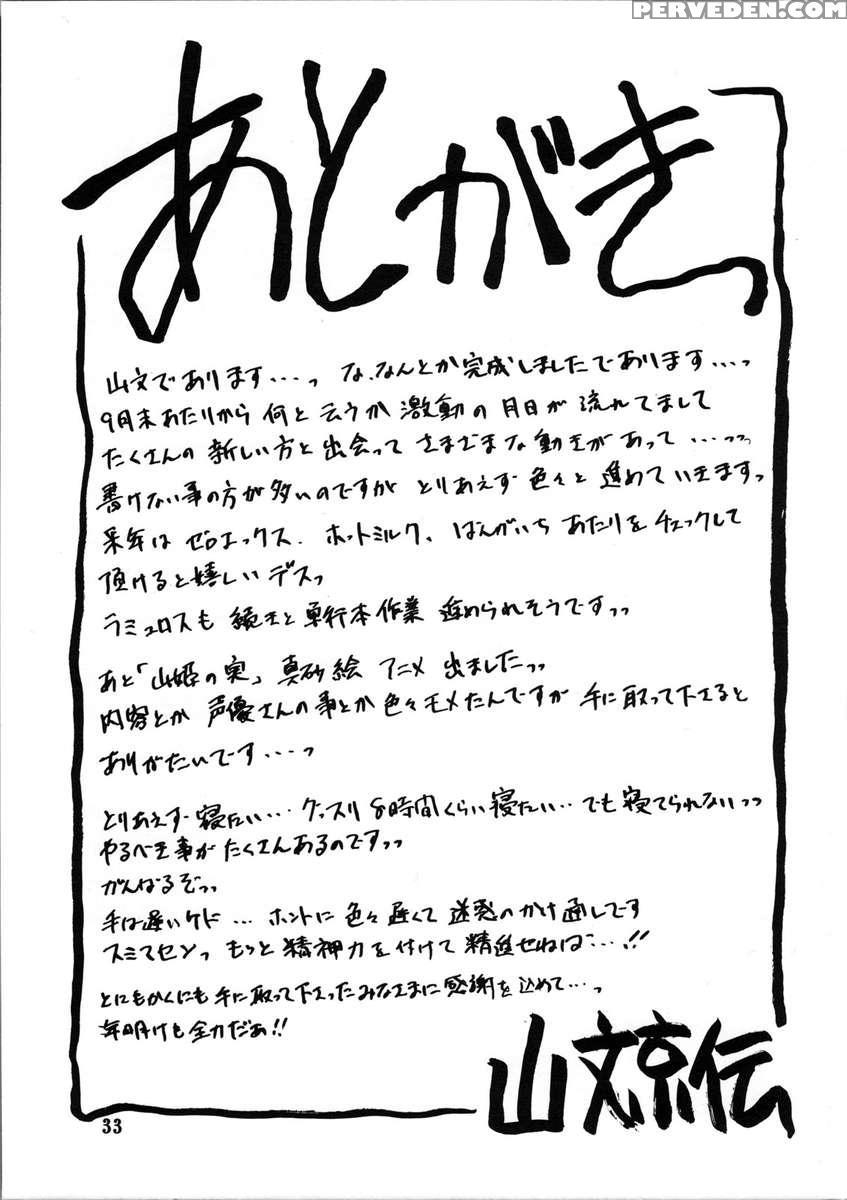 PERVEDEN.COM
あとがきっ
山文であります…っ な、なんとか完成しましたであります…っ
9月末あたりから 何と云うか 激動の 月日が 流れてまして
たくさんの 新しい方と 出会って さまざまな 動きがあって …っっ
書けない事の方が多いのですが とりあえず 色々と 進めていきますっ
来年は ゼロエックス、ホットミルク、ばんがいち あたりを チェックして
頂けると嬉しい デスっ
ラミュロスも 続きと 単行本作業 進められそうですっっ
あと「山姫の実」真砂絵 アニメ 出ましたっっ
内容とか 声優さんの事とか 色々モメたんですが 手に取って下さると
ありがたいです…っ
とりあえず 寝たい… グッスリ 8時間くらい 寝たい… でも 寝てられないっっ
やるべき事が たくさんあるのですっっ
がんばるぞっっ
手は遅いケド … ホントに 色々 遅くて 迷惑の かけ通しです
スミマセンっ もっと 精神力を 付けて 精進せねば…!!
とにもかくにも 手に取って下さったみなさまに 感謝を 込めて…っ
年明けも 全力だぁ!!
山文京伝
33